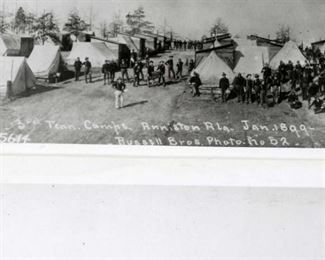 3rd Tenn. Camps. Anniston Ala. Jan. 1899-
5644 Russell Bros. Photo. No 52.